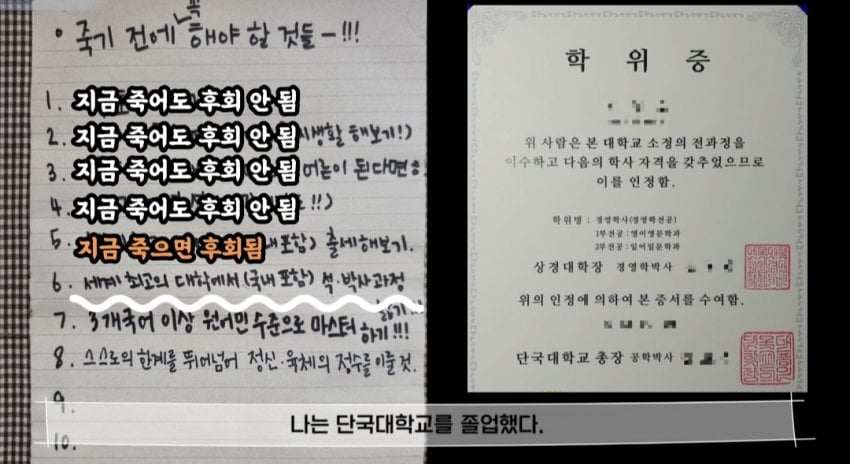 꼭
◦ 죽기 전에 해야 할 것들 ㅡ!!!
1. 지금 죽어도 후회 안 됨
2. 지금 죽어도 후회 안 됨 생활 해보기!)
3. 지금 죽어도 후회 안 됨 어른이 된다면
4. 지금 죽어도 후회 안 됨 !!)
5. 지금 죽으면 후회됨 포함) 출세해보기.
6. 세계 최고의 대학에서 (국내 포함) 석·박사과정
밟기!!!
7. 3개국어 이상 원어민 수준으로 마스터 하기!!!
8. 스스로의 한계를 뛰어넘어 정신·육체의 정수를 이룰 것.
9.
10.
학 위 증
위 사람은 본 대학교 소정의 전과정을
이수하고 다음의 학사 자격을 갖추었으므로
이를 인정함.
학위명 : 경영학사(경영학전공)
1부전공 : 영어영문학과
2부전공 : 일어일문학과
상경대학장 경영학박사
위의 인정에 의하여 본 증서를 수여함.
단국대학교 총장 공학박사
나는 단국대학교를 졸업했다.